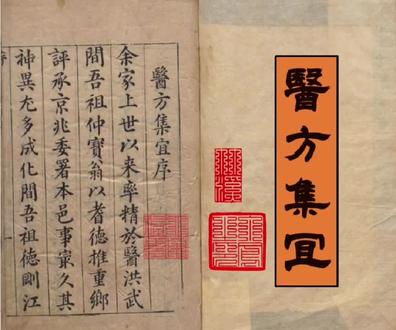 醫方集冝
醫方集宜序
余家上世以來率精於醫洪武
間吾祖仲寶翁以耆德推重鄉
評承京兆委署本邑事㝡久其
神異尤多成化間吾祖德剛江